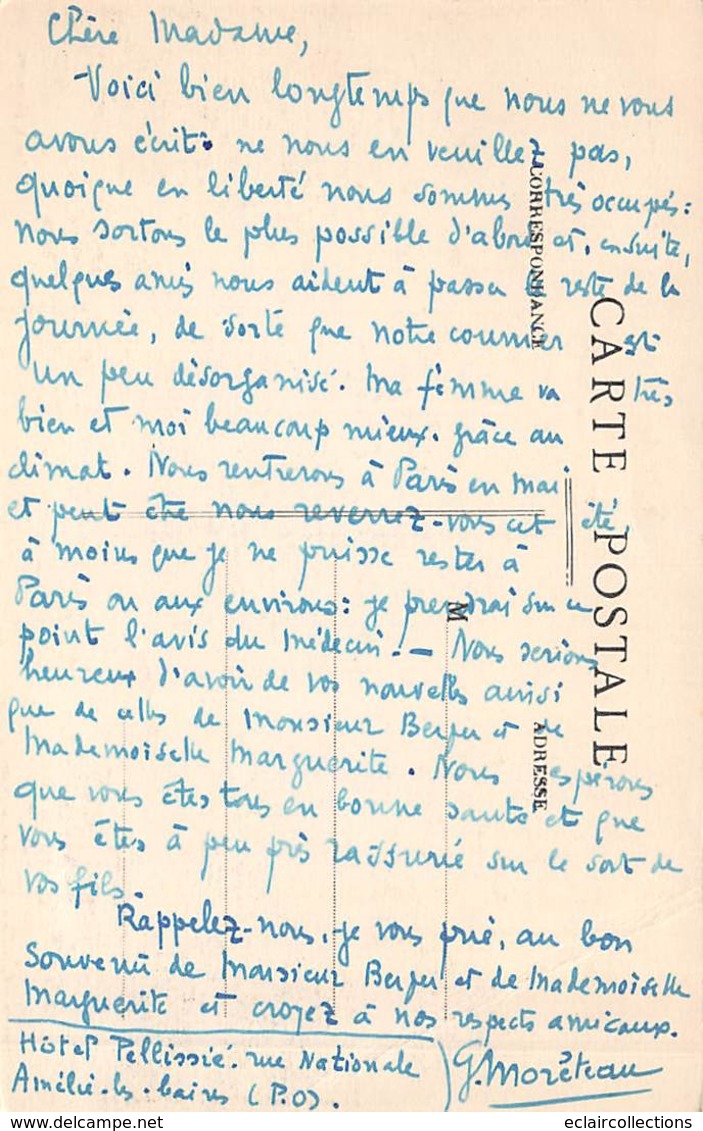 Chère Madame,
Voici bien longtemps que nous ne vous
avons écrit: ne nous en veuillez pas,
quoique en liberté nous sommes très occupés:
nous sortons le plus possible d'abord et, ensuite,
quelques amis nous aident à passer le reste de la
journée, de sorte que notre courrier est
un peu désorganisé. Ma femme va très
bien et moi beaucoup mieux. grâce au
climat. Nous rentrerons à Paris en mai
et peut être nous reverrez-vous cet été,
à moins que je ne puisse rester à
Paris ou aux environs: je prendrai sur ce
point l'avis du médecin. — Nous serions
heureux d'avoir de vos nouvelles ainsi
que de celles de Monsieur Berger et de
Mademoiselle Marguerite. Nous espérons
que vous êtes tous en bonne santé et que
vous êtes à peu près rassurié sur le sort de
vos fils.
Rappelez-nous, je vous prie, au bon
souvenir de Monsieur Berger et de Mademoiselle
Marguerite et croyez à nos respects amicaux.
Hôtel Pellissié. rue Nationale
Amélie-les-bains (P.O).
G. Moréteau
CORRESPONDANCE
CARTE POSTALE
M
ADRESSE
eclaircollections